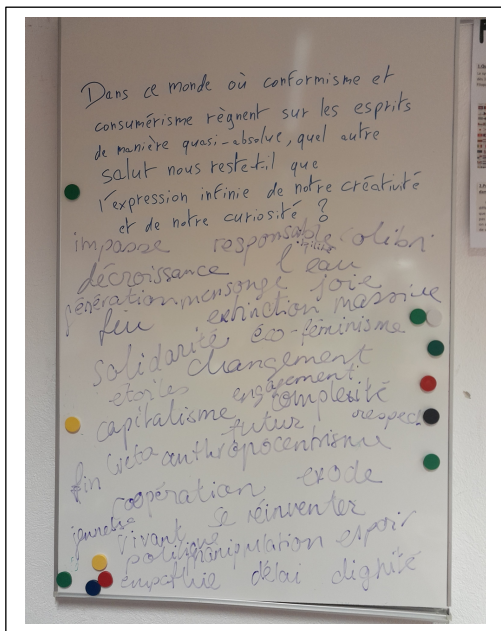 Dans ce monde où conformisme et
consumérisme règnent sur les esprits
de manière quasi-absolue, quel autre
salut nous reste-t-il que
l'expression infinie de notre créativité
et de notre curiosité ?
impasse responsable colibri
décroissance l'eau
génération mensonge joie
fin extinction massive
solidarité éco-féminisme
étoiles changement
engagement
capitalisme complexité
futur respect
fin Greta anthropocentrisme
coopération exode
jeunesse vivant se réinventer
politique manipulation espoir
empathie délai dignité